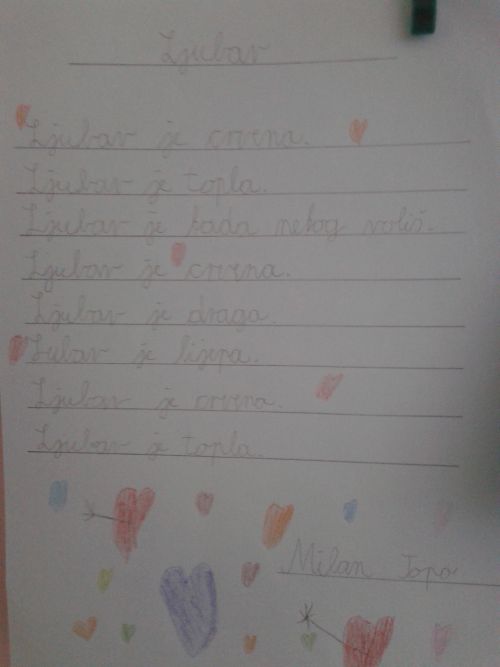 Ljubav
Ljubav je crvena.
Ljubav je topla.
Ljubav je kada nekog voliš.
Ljubav je crvena.
Ljubav je draga.
Lubav je lijepa.
Ljubav je crvena.
Ljubav je topla.
Milan Topo